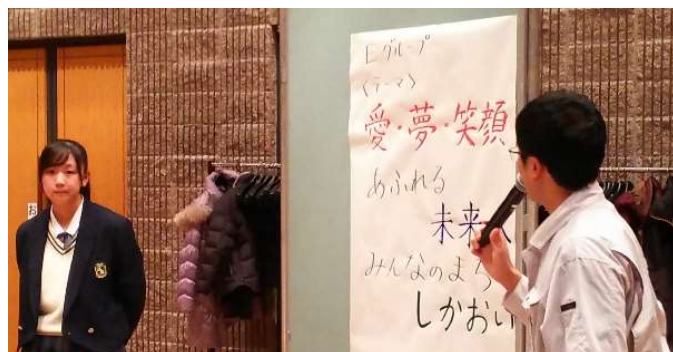 Eグループ
〈テーマ〉
愛・夢・笑顔
あふれる
未来へ
みんなのまち
しかおい